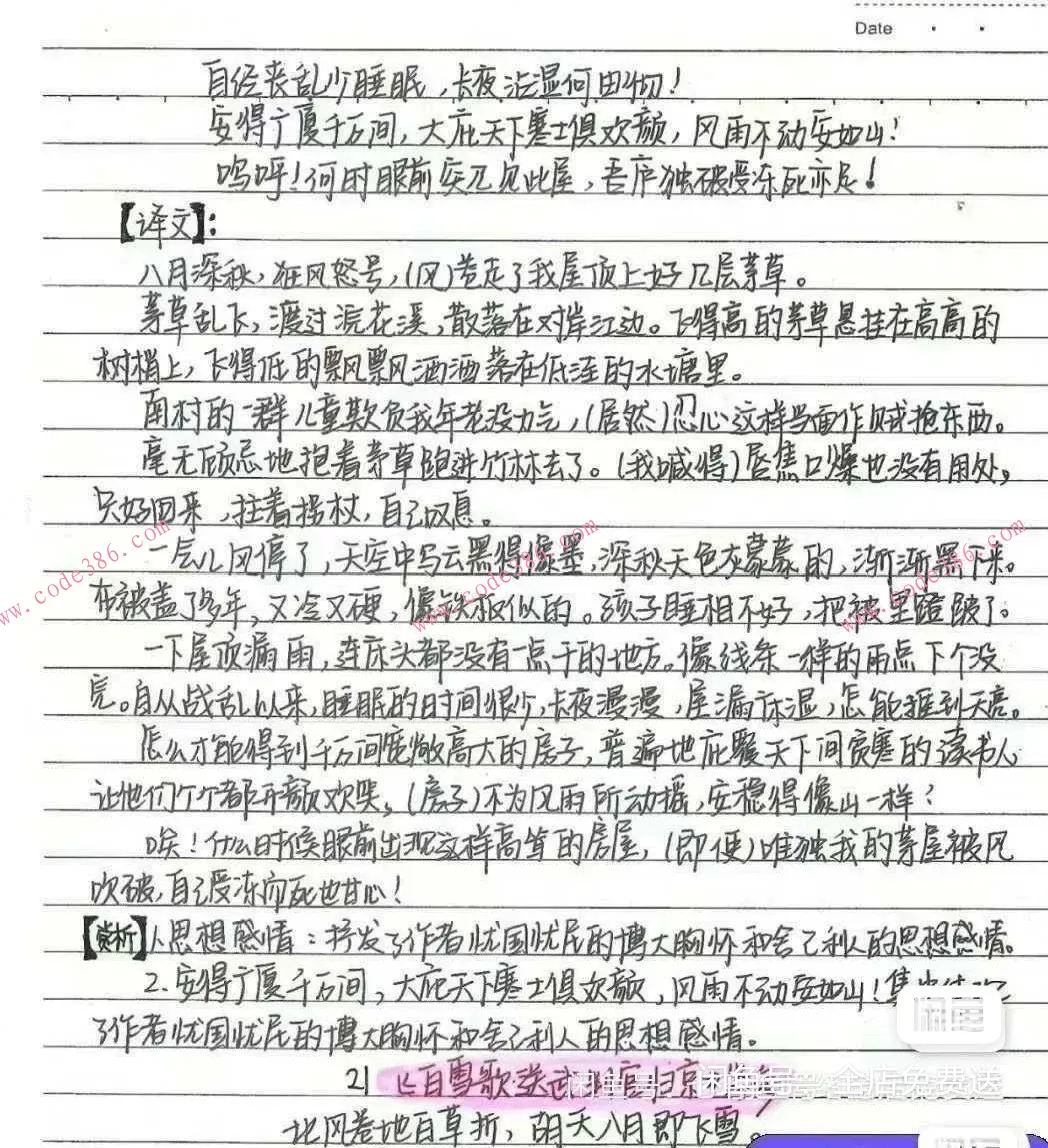 Date
自经丧乱少睡眠，长夜沾湿何由彻！
安得广厦千万间，大庇天下寒士俱欢颜，风雨不动安如山！
呜呼！何时眼前突兀见此屋，吾庐独破受冻死亦足！
【译文】：
八月深秋，狂风怒号，(风)卷走了我屋顶上好几层茅草。
茅草乱飞，渡过浣花溪，散落在对岸江边。飞得高的茅草悬挂在高高的
树梢上，飞得低的飘飘洒洒落在低洼的水塘里。
南村的一群儿童欺负我年老没力气，(居然)忍心这样当面作贼抢东西。
毫无顾忌地抱着茅草跑进竹林去了。(我喊得)唇焦口燥也没有用处，
只好回来，拄着拐杖，自己叹息。
一会儿风停了，天空中乌云黑得像墨，深秋天色灰蒙蒙的，渐渐黑下来。
布被盖了多年，又冷又硬，像铁板似的。孩子睡相不好，把被里蹬破了。
一下屋顶漏雨，连床头都没有一点干的地方。像线条一样的雨点下个没
完。自从战乱以来，睡眠的时间很少，长夜漫漫，屋漏床湿，怎能挨到天亮。
怎么才能得到千万间宽敞高大的房子，普遍地庇覆天下间贫寒的读书人，
让他们个个都开颜欢笑，(房子)不为风雨所动摇，安稳得像山一样？
唉！什么时候眼前出现这样高耸的房屋，(即便)唯独我的茅屋被风
吹破，自己受冻而死也甘心！
【赏析】1.思想感情：抒发了作者忧国忧民的博大胸怀和舍己利人的思想感情。
2.安得广厦千万间，大庇天下寒士俱欢颜，风雨不动安如山！集中
了作者忧国忧民的博大胸怀和舍己利人的思想感情。
21 白雪歌送武判官归京
北风卷地百草折，胡天八月即飞雪
www.code386.com
www.code386.com
www.code386.com
闲鱼
闲鱼号
全店免费送